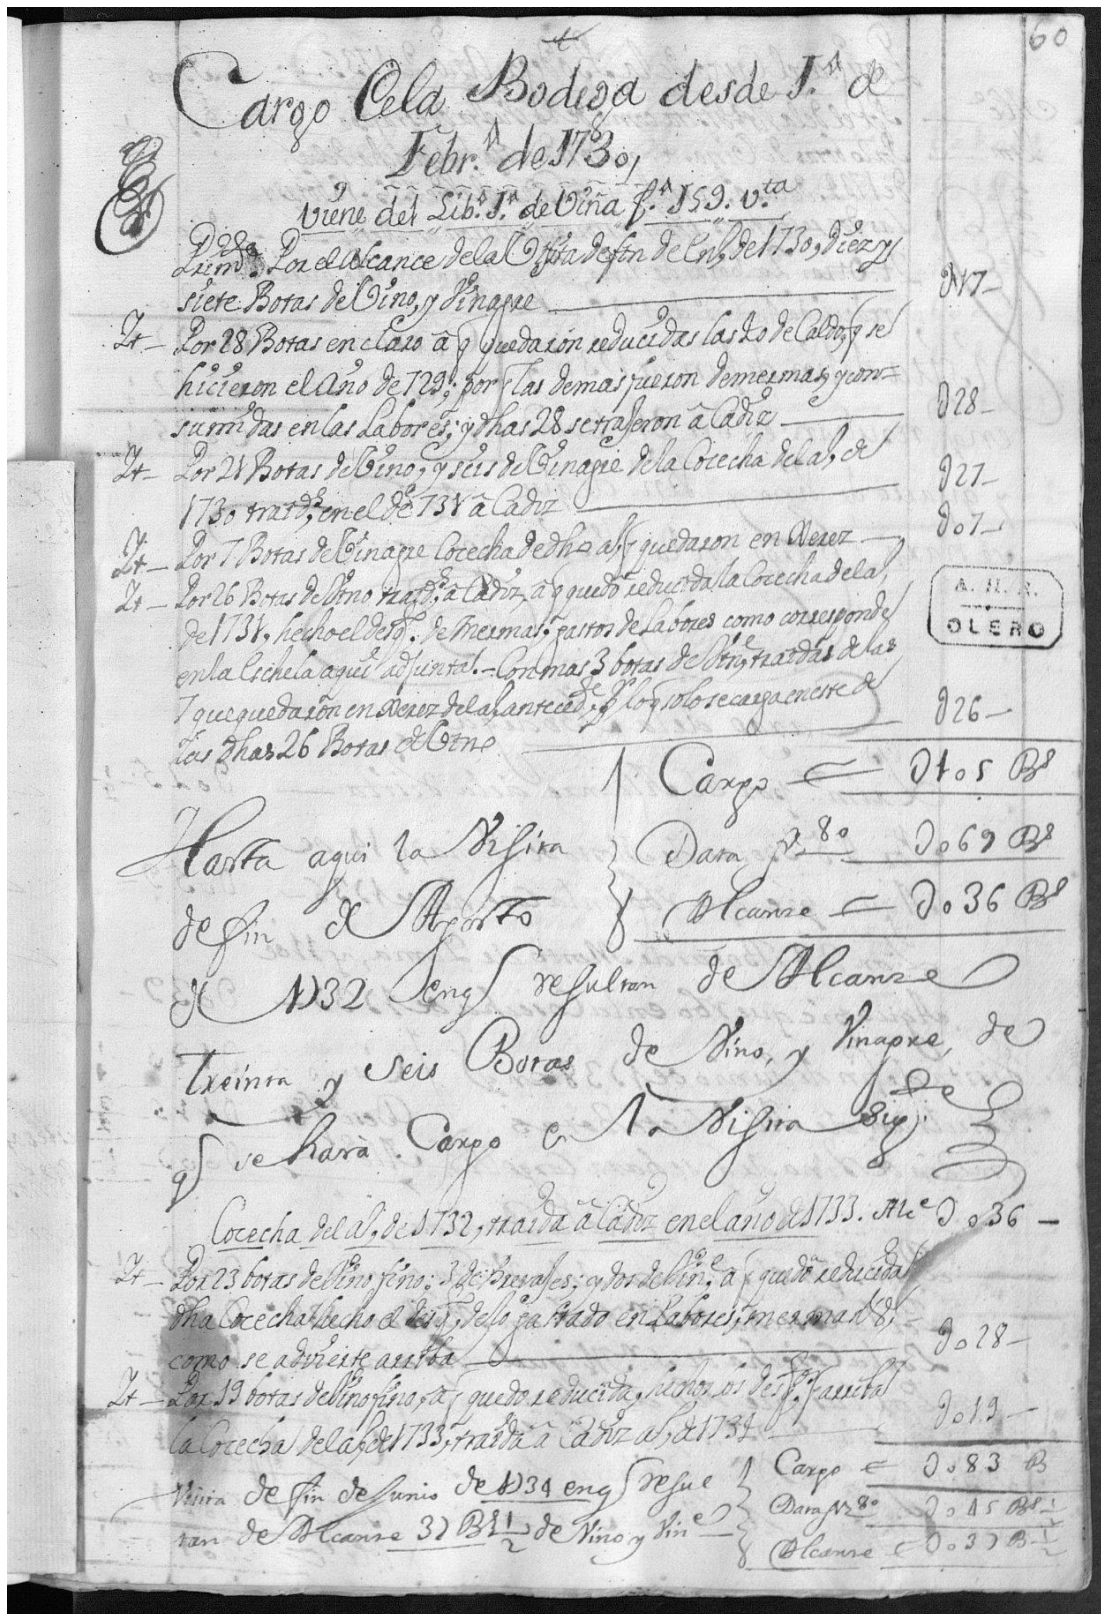 60
Cargo de la Bodega desde 1.º de
Febr.º de 1730,
viene del Lib.º 1.º de Viña f.º 159. v.ta
Prim.te Por el Alcance de la Visita de fin de En.º de 1730, diez y
siete Botas de Vino, y Vinagre — 017—
It— Por 28 Botas en claro â q quedaron reducidas las 40 de Caldo, q se
hicieron el Año de 729; por q las demas fueron de mermas, y con-
sumidas en las Labores; y dhas 28 se trageron â Cadiz — 028—
It— Por 21 Botas de Vino, y seis de Vinagre de la Cocecha del a.º de
1730 traid.s en el de 731 â Cadiz — 027—
It— Por 7 Botas de Vinagre Cocecha de dho a.º q quedaron en Xerez — 007—
It— Por 26 Botas de Vino traid.s â Cadiz, â q quedò reducida la Cocecha del a.º
de 1731, hecho el desq.te de Mermas, gastos de Labores como corresponde
en la Eschela aqui adjunta. — Con mas 3 botas de Vin.e traidas de las
7 que quedaron en Xerez del a.º anteced.te, p.r lo q solo se carga en este de
las dhas 26 Botas de Vino — 026—
A. H. N.
CLERO
Cargo = 0105 B.s
Hasta aqui la Visita
Data f. 80 0069 B.s
de fin de Agosto
Alcanze = 0036 B.s
de 1732 en q resultan de Alcanze
treinta y seis Botas de Vino, y Vinagre, de
q se harà Cargo en la Visita sig.te
Cocecha del a.º de 1732, traida â Cadiz en el año de 1733. Alc.e 0036—
It— Por 23 botas de Vino fino; 3 de Brevajes; y dos de Vin.e â q quedò reducida
dha Cocecha hecho el desq.te de lo gastado en Labores, mermas &,
como se advierte arriba — 0028—
It— Por 19 botas de Vino fino, â q quedo reducida, hechos los desq.tes q arriba
la Cocecha del a.º de 1733, traida â Cadiz a.º de 1734 — 0019—
Cargo = 0083 B
Visita de fin de Junio de 1734 en q resul
Data f. 80 0045 B.s 1/2
tan de Alcanze 37 B.s 1/2 de Vino y Vin.e
Alcanze = 0037 B 1/2